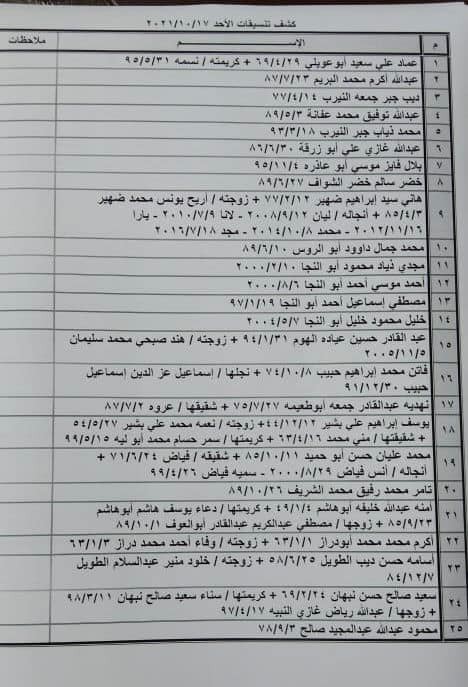 كشف تنسيقات الأحد ٢٠٢١/١٠/١٧
م الاســـــم ملاحظات
١ عماد علي سعيد أبو عويلي ٦٩/٤/٢٩ + كريمته / نسمه ٩٥/٥/٣١
٢ عبدالله أكرم محمد البريم ٨٧/٧/٢٣
٣ ديب جبر جمعه النيرب ٧٧/٤/١٤
٤ عبدالله توفيق محمد عفانة ٨٩/٥/٣
٥ محمد ذياب جبر النيرب ٩٣/٣/١٨
٦ عبدالله غازي علي أبو زرقة ٨٦/٦/٣٠
٧ بلال فايز موسي أبو عاذره ٩٥/١١/٤
٨ خضر سالم خضر الشواف ٨٩/٦/٢٧
هاني سيد إبراهيم ضهير ٧٧/٢/١٢ + زوجته / أريج يونس محمد ضهير
٩ ٨٥/٤/٣ + أنجاله / ليان ٢٠٠٨/٩/١٢ - لانا ٢٠١٠/٧/٩ - يارا
٢٠١٢/١١/١٦ - محمد ٢٠١٤/١٠/٨ - مجد ٢٠١٦/٧/١٨
١٠ محمد جمال داوود أبو الروس ٨٩/٦/١٠
١١ مجدي ذياد محمود أبو النجا ٢٠٠٠/٢/١٠
١٢ أحمد موسي أحمد أبو النجا ٢٠٠٠/٨/٦
١٣ مصطفي إسماعيل أحمد أبو النجا ٩٧/١/١٩
١٤ خليل محمود خليل أبو النجا ٢٠٠٤/٥/٧
١٥ عبد القادر حسين عياده الهوم ٩٤/١/٣١ + زوجته / هند صبحي محمد سليمان
٢٠٠٥/١١/٥
١٦ فاتن محمد إبراهيم حبيب ٧٤/١٠/٨ + نجلها / إسماعيل عز الدين إسماعيل
حبيب ٩١/١٢/٣٠
١٧ نهديه عبدالقادر جمعه أبوطعيمه ٧٥/٧/٢٧ + شقيقها / عروه ٨٧/٧/٢
١٨ يوسف إبراهيم علي بشير ٤٤/١٢/١٢+ زوجته / نعمه محمد علي بشير ٥٤/٥/٢٧
+ شقيقتها / مني محمد ٦٣/٤/١٦ + كريمتها / سمر حسام محمد أبو ليه ٩٩/٥/١٥
١٩ محمد عليان حسن أبو حميد ٨٥/١٠/١١ + شقيقه / فياض ٧١/٦/٢٤ +
أنجاله / أنس فياض ٢٠٠٠/٨/٢٩ - سميه فياض ٩٩/٤/٢٦
٢٠ تامر محمد رفيق محمد الشريف ٨٩/١٠/٢٦
٢١ أمنه عبدالله خليفه أبوهاشم ٤٩/١/٤ + كريمتها / دعاء يوسف هاشم أبوهاشم
٨٥/٩/٢٣ + زوجها / مصطفي عبدالكريم عبدالقادر أبوالعوف ٨٩/١٠/١
٢٢ أكرم محمد محمد أبودراز ٦٣/١/١ + زوجته / وفاء أحمد محمد دراز ٦٣/١/٣
٢٣ أسامه حسن ديب الطويل ٥٨/٦/٢٥ + زوجته / خلود منير عبدالسلام الطويل
٨٤/١٢/٧
٢٤ سعيد صالح حسن نبهان ٦٩/٢/٢٤ + كريمتها / سناء سعيد صالح نبهان ٩٨/٣/١١
+ زوجها / عبدالله رياض غازي النبيه ٩٧/٤/١٧
٢٥ محمود عبدالله عبدالمجيد صالح ٧٨/٩/٣